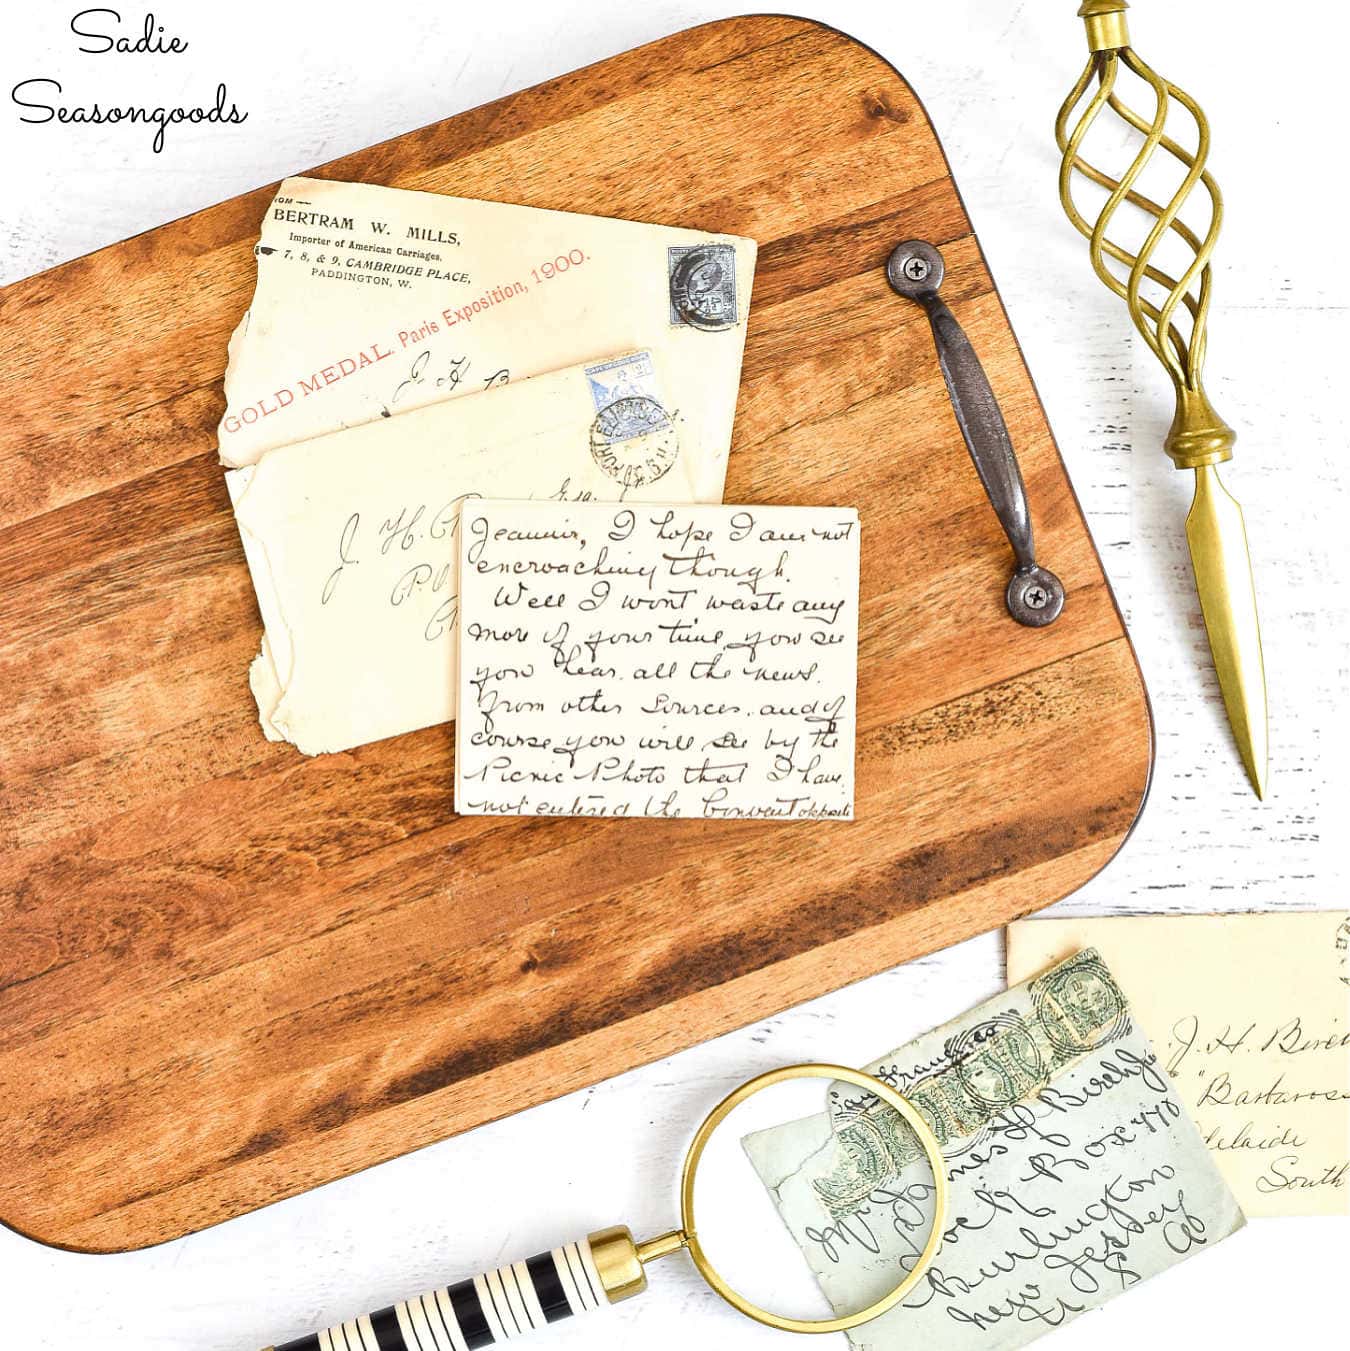 Sadie
Seasongoods
BERTRAM W. MILLS,
Importer of American Carriages.
7, 8, & 9, CAMBRIDGE PLACE,
PADDINGTON, W.
GOLD MEDAL. Paris Exposition, 1900.
J. H.
J. H.
P.O.
I hope I am not
encroaching though.
Well I wont waste any
more of your time, you see
you hear all the news.
from other sources. and of
course you will see by the
Picnic Photo that I have
not entered the Convent opposite
San Francisco
Mr James H Birch Jr
Lock Box 770
Burlington
New Jersey
J. H. Birch
"Barbaross
Adelaide
South